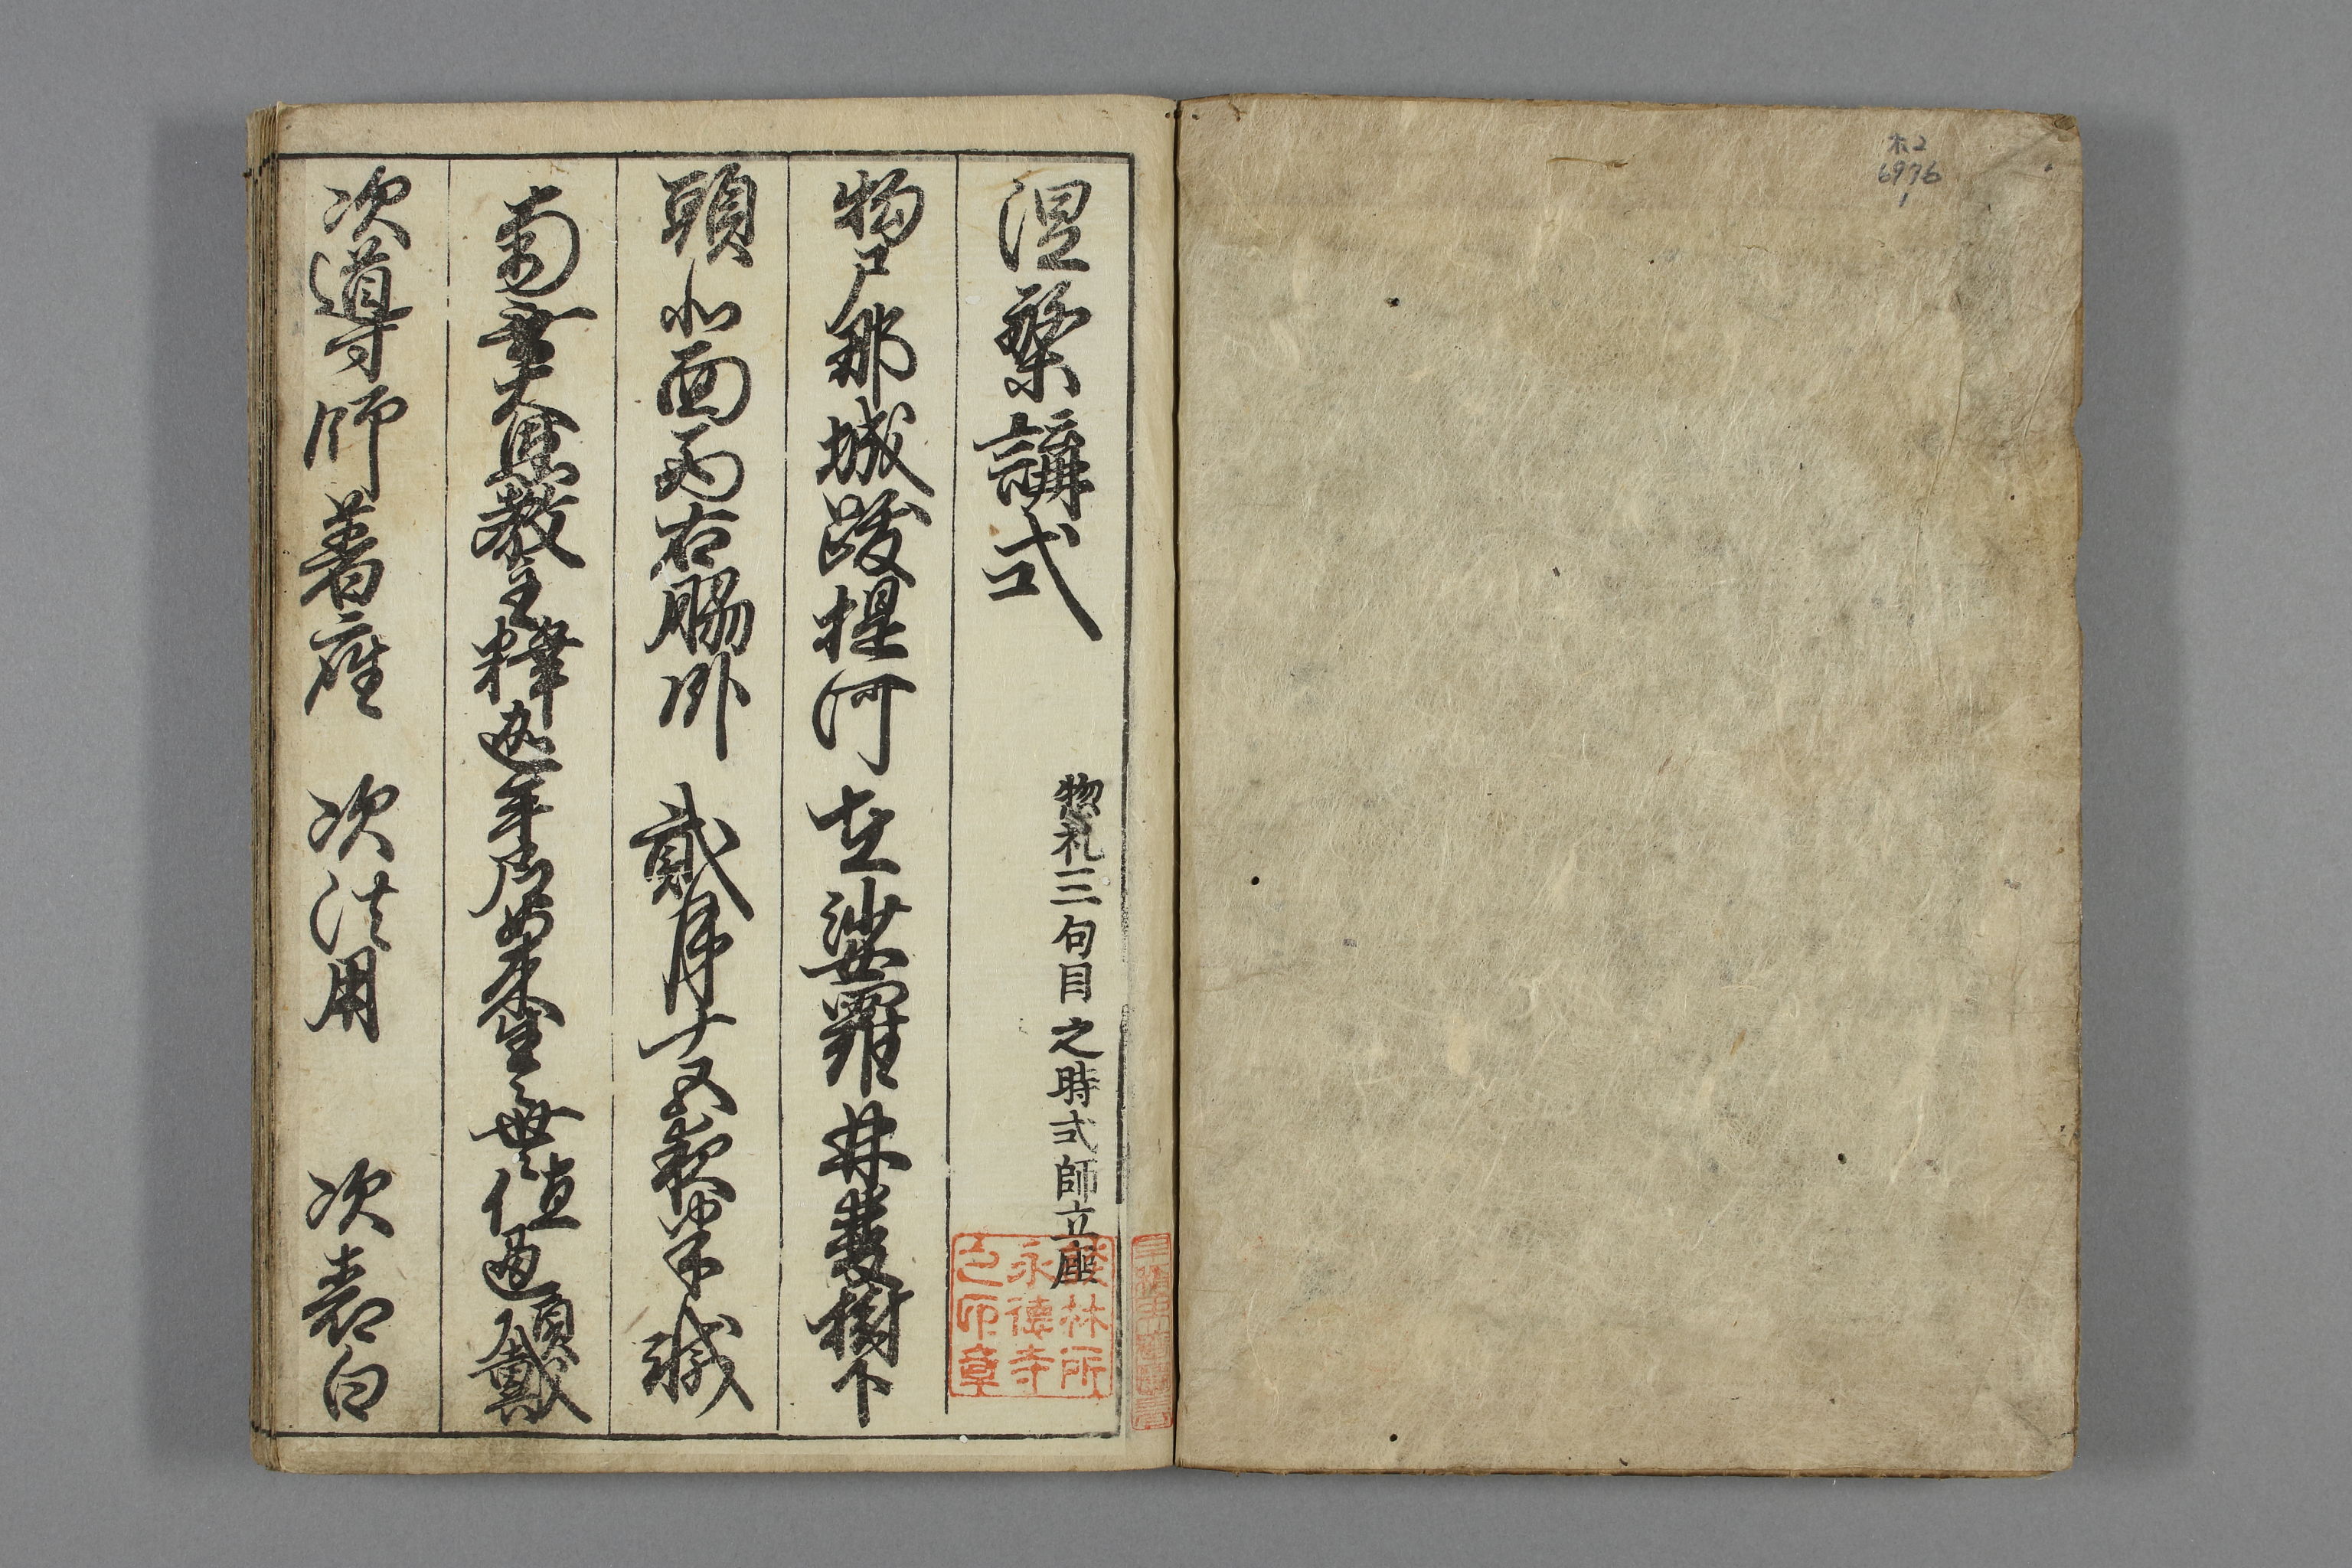 木2
6976
1
涅槃講式
惣礼三句目之時式師立座
物尸那城跋提河 在娑羅林雙樹下
頭北面西右脇卧 貳月十五夜半滅
南無大恩教主釋迦牟尼如来生々世々値遇頂戴
次導師著座 次法用 次表白
永德寺
之印章